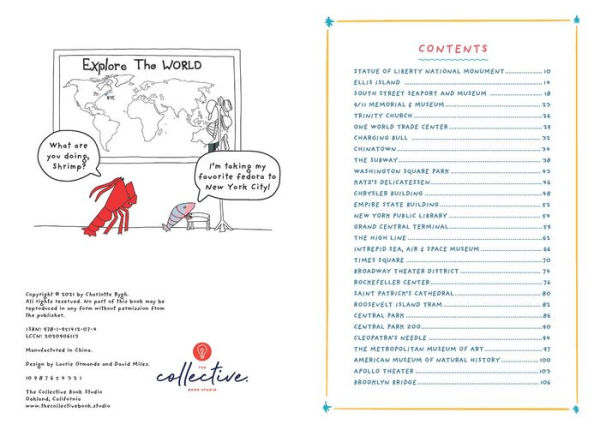 Explore The WORLD
NYC
What are
you doing,
Shrimp?
I'm taking my
favorite fedora to
New York City!
Copyright © 2021 by Charlotte Rygh.
All rights reserved. No part of this book may be
reproduced in any form without permission from
the publisher.
ISBN: 978-1-951412-07-4
LCCN: 2020906113
Manufactured in China.
Design by Laurie Otmande and David Miles.
10 9 8 7 6 5 4 3 2 1
The Collective Book Studio
Oakland, California
www.thecollectivebook.studio
THE
collective.
BOOK STUDIO
CONTENTS
STATUE OF LIBERTY NATIONAL MONUMENT 10
ELLIS ISLAND 14
SOUTH STREET SEAPORT AND MUSEUM 18
9/11 MEMORIAL & MUSEUM 22
TRINITY CHURCH 26
ONE WORLD TRADE CENTER 28
CHARGING BULL 32
CHINATOWN 34
THE SUBWAY 38
WASHINGTON SQUARE PARK 42
KATZ'S DELICATESSEN 46
CHRYSLER BUILDING 48
EMPIRE STATE BUILDING 52
NEW YORK PUBLIC LIBRARY 54
GRAND CENTRAL TERMINAL 58
THE HIGH LINE 62
INTREPID SEA, AIR & SPACE MUSEUM 66
TIMES SQUARE 70
BROADWAY THEATER DISTRICT 74
ROCKEFELLER CENTER 76
SAINT PATRICK'S CATHEDRAL 80
ROOSEVELT ISLAND TRAM 82
CENTRAL PARK 86
CENTRAL PARK ZOO 90
CLEOPATRA'S NEEDLE 94
THE METROPOLITAN MUSEUM OF ART 97
AMERICAN MUSEUM OF NATURAL HISTORY 100
APOLLO THEATER 103
BROOKLYN BRIDGE 106